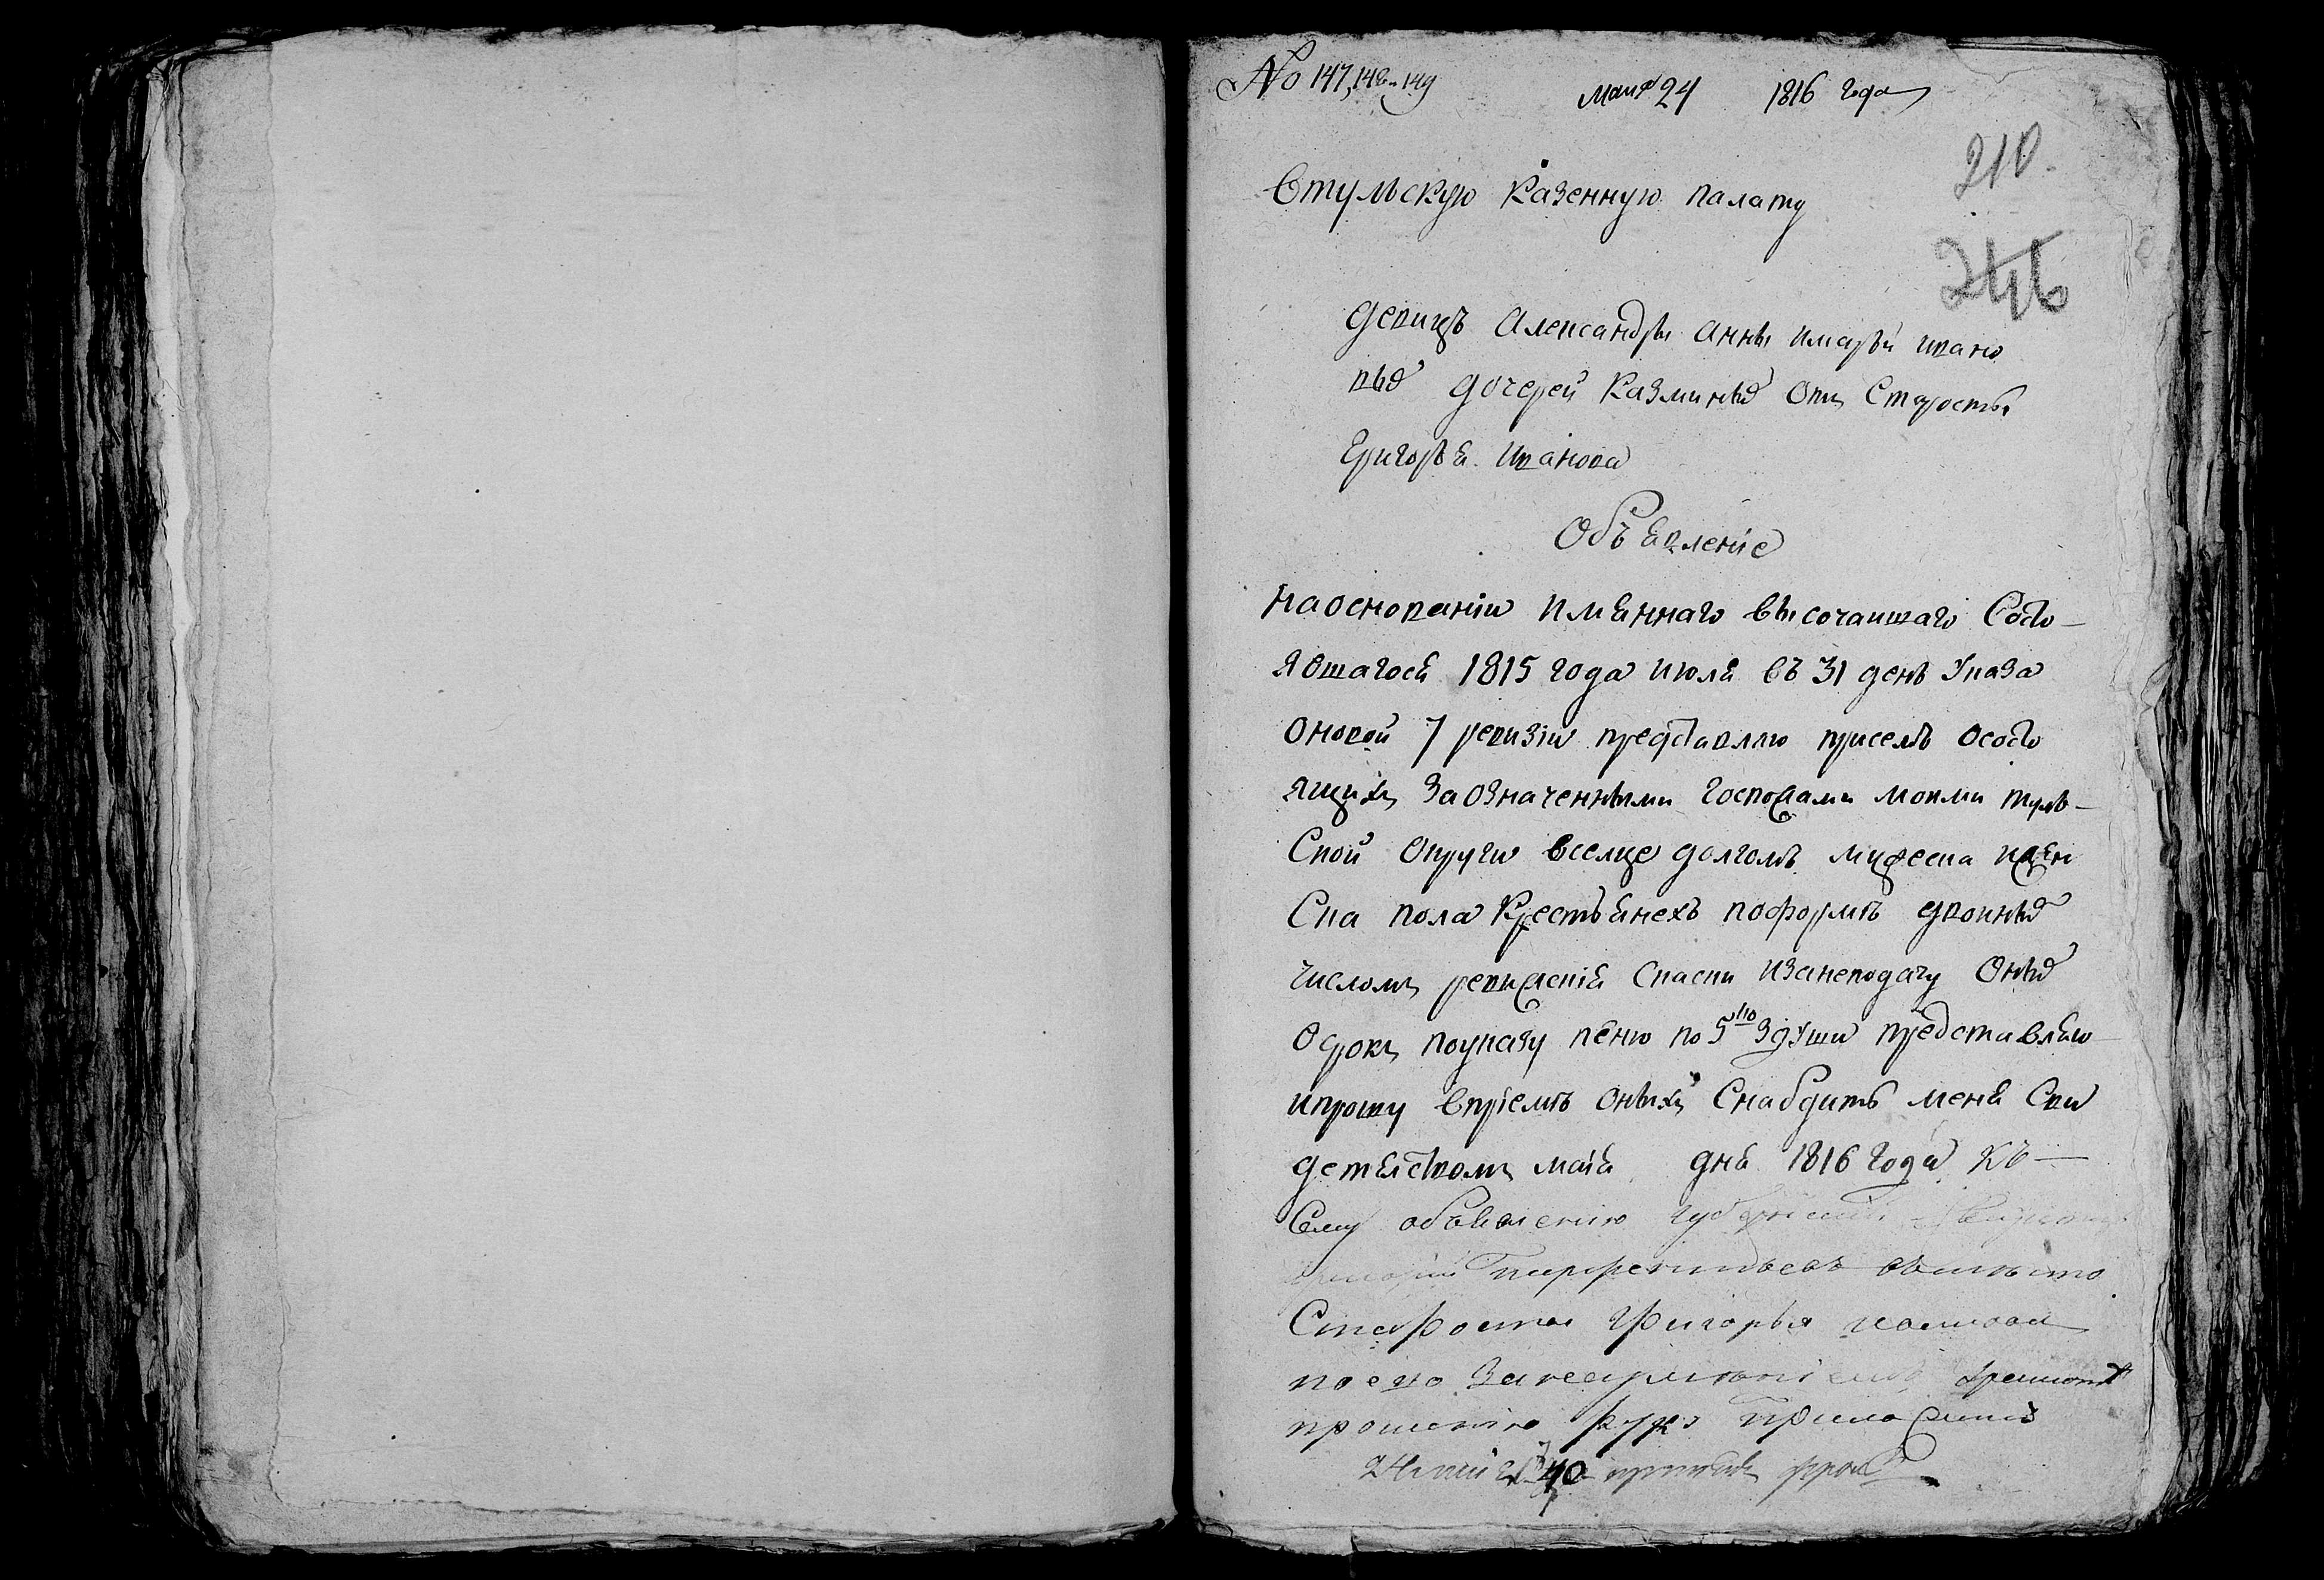 No 147, 148 и 149 мая 24 1816 года
210.
Втульскую казенную палату
246
девицъ Александры Анны имарьи ивано
выхъ дочерей Казминыхъ отъ Старосты
Григорья Иванова
Объявленіе
наоснованіи имяннаго высочаишаго Состо-
явшагося 1815 года июля въ 31 день Указа
оновой 7 ревизіи представляю присемъ ососто
ящихъ заозначенными господами моими туль-
ской округи вселце долгомъ мужеска ижен
ска пола крестьянехъ поформѣ двоиныхъ
числомъ ревискія скаски изанеподачу оныхъ
всрокъ поуказу пеню по 5 здуши представляю
ипрошу впріемѣ оныхъ Снабдить меня Сви
детельствомъ маія дня 1816 года Къ
Сему объявлению
вместо
Старосты Григорья иванова
поево
прошению руку приложилъ